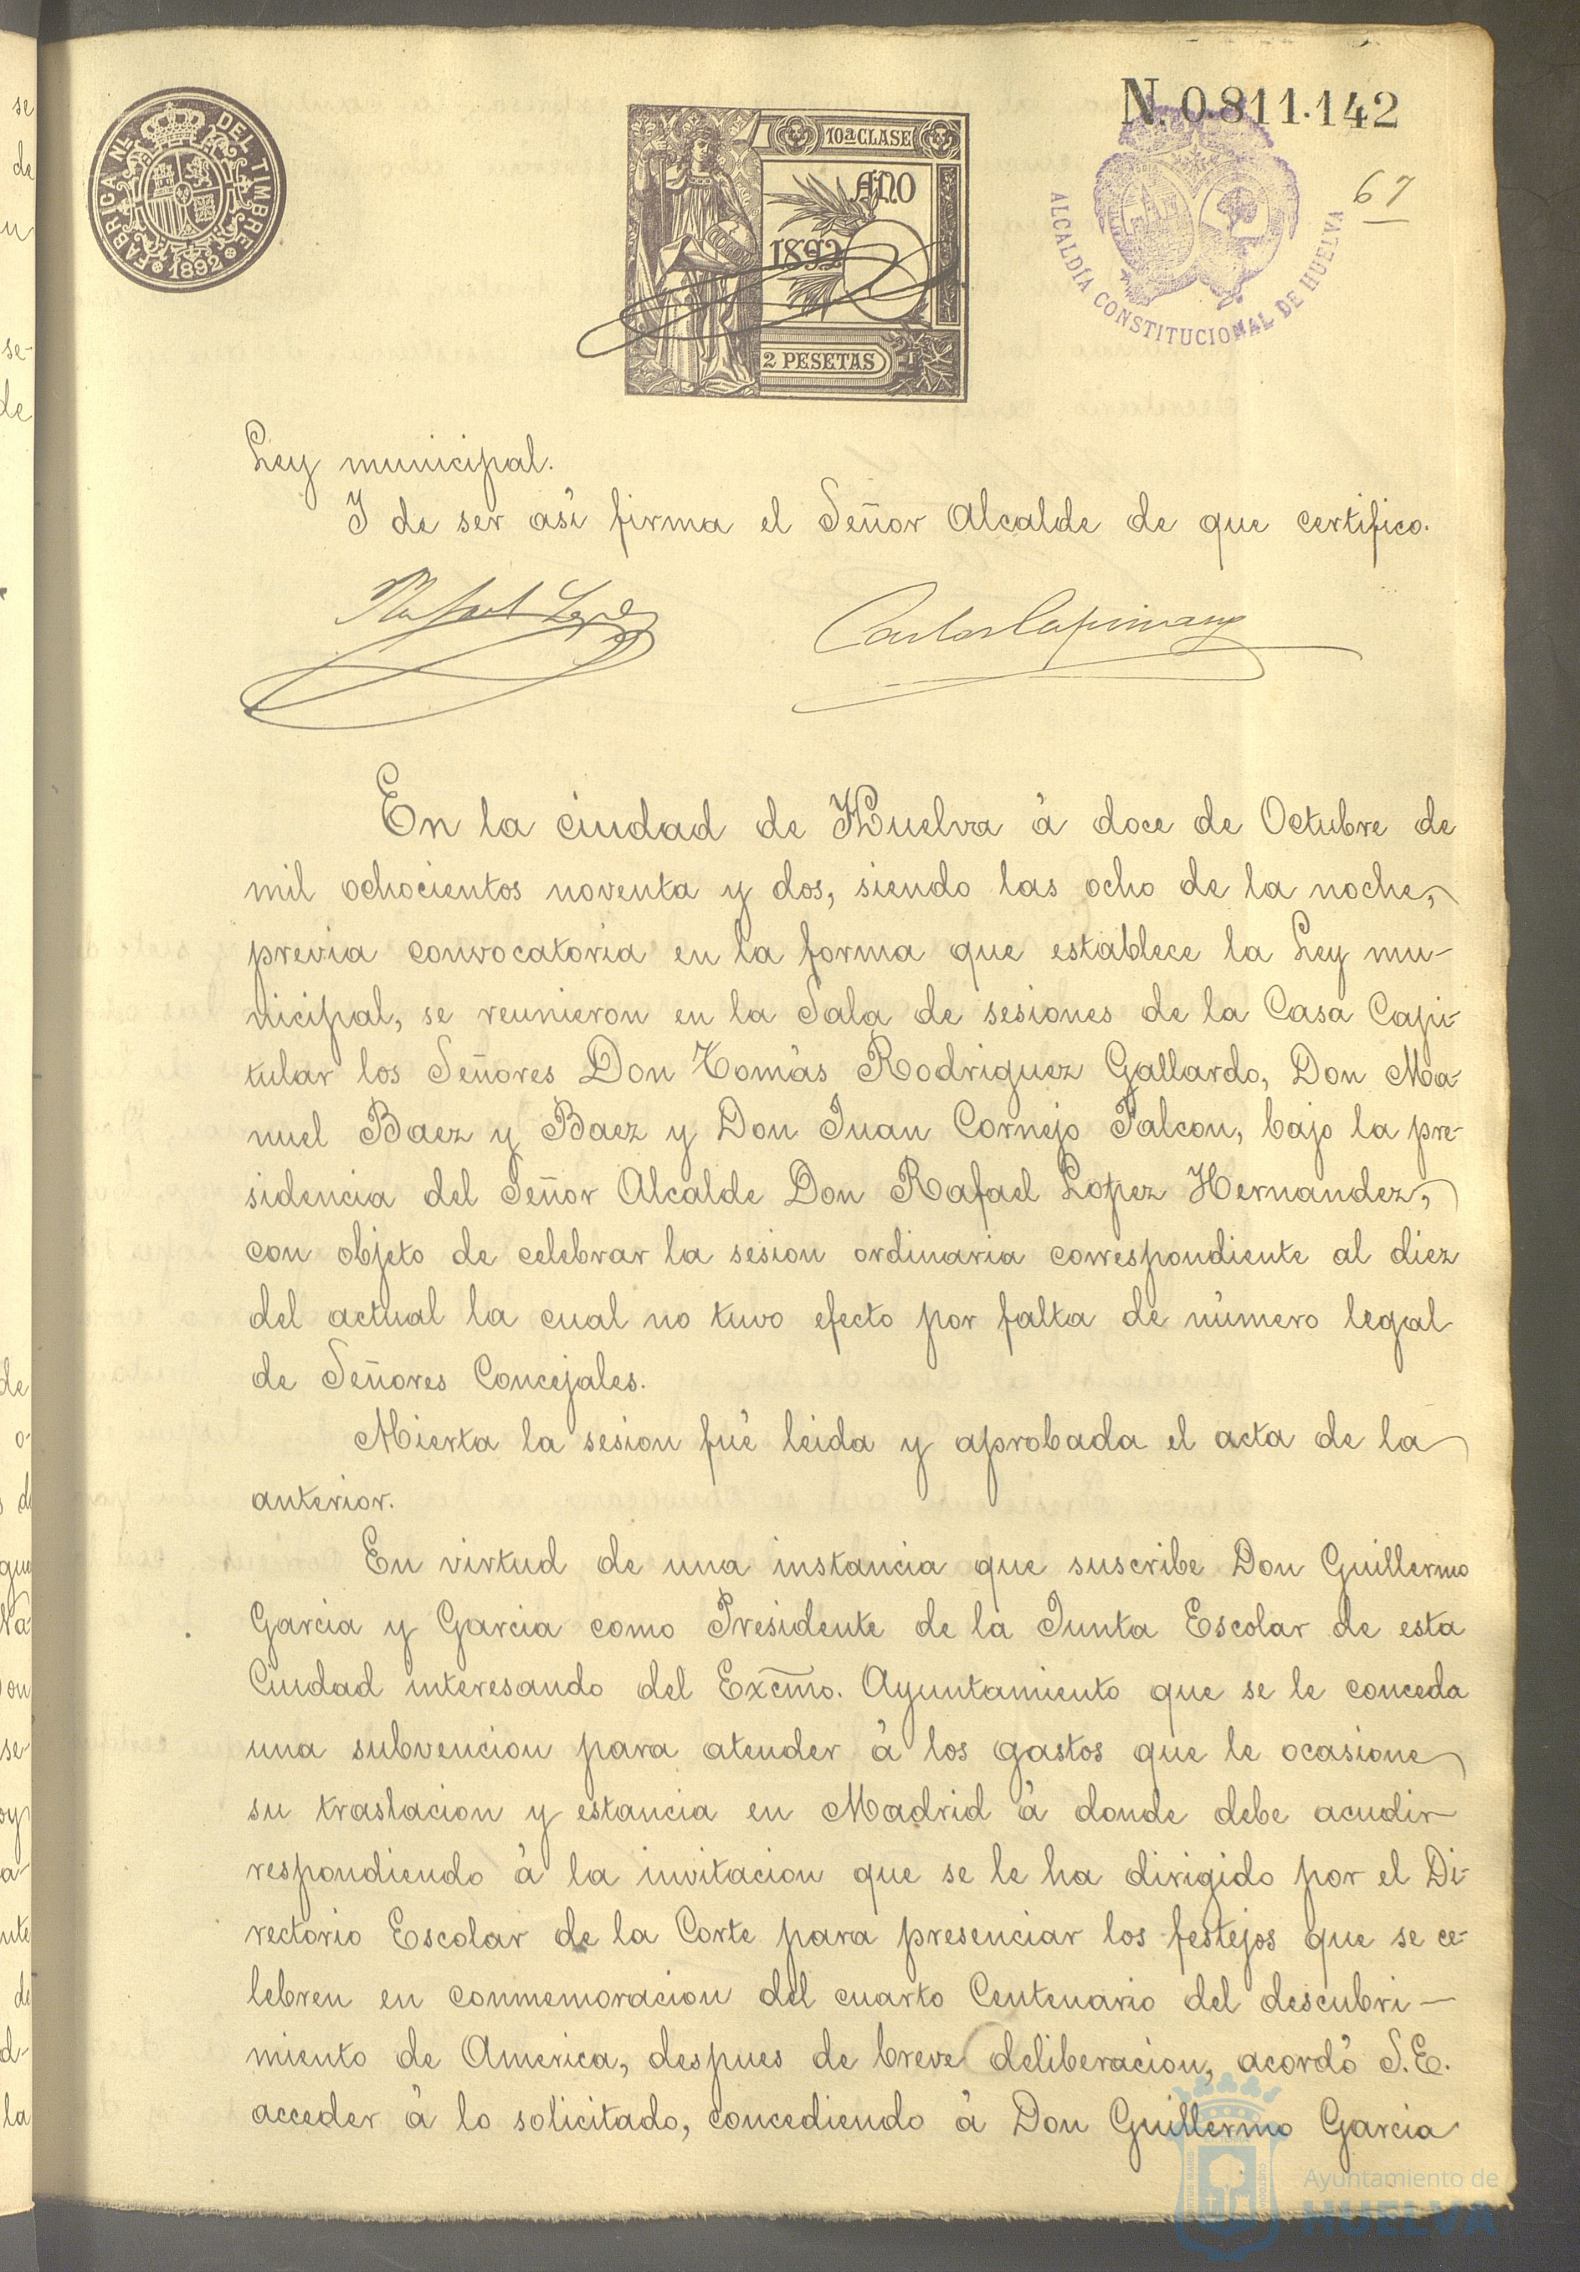 FABRICA NAL DEL TIMBRE
1892
10ª CLASE
AÑO
1892
2 PESETAS
N. 0.811.142
ALCALDÍA CONSTITUCIONAL DE HUELVA
67
Ley municipal.
Y de ser así firma el Señor Alcalde de que certifico.
Rafael Lopez
En la ciudad de Huelva á doce de Octubre de
mil ochocientos noventa y dos, siendo las ocho de la noche,
previa convocatoria en la forma que establece la Ley mu-
nicipal, se reunieron en la Sala de sesiones de la Casa Capi-
tular los Señores Don Tomás Rodriguez Gallardo, Don Ma-
nuel Baez y Baez y Don Juan Cornejo Falcon, bajo la pre-
sidencia del Señor Alcalde Don Rafael Lopez Hernandez,
con objeto de celebrar la sesion ordinaria correspondiente al diez
del actual la cual no tuvo efecto por falta de número legal
de Señores Concejales.
Abierta la sesion fué leida y aprobada el acta de la
anterior.
En virtud de una instancia que suscribe Don Guillermo
Garcia y Garcia como Presidente de la Junta Escolar de esta
Ciudad interesando del Excmo. Ayuntamiento que se le conceda
una subvencion para atender á los gastos que le ocasione
su traslacion y estancia en Madrid á donde debe acudir
respondiendo á la invitacion que se le ha dirigido por el Di-
rectorio Escolar de la Corte para presenciar los festejos que se ce-
lebren en conmemoracion del cuarto Centenario del descubri-
miento de America, despues de breve deliberacion, acordó S.E.
acceder á lo solicitado, concediendo á Don Guillermo Garcia
Ayuntamiento de
HUELVA